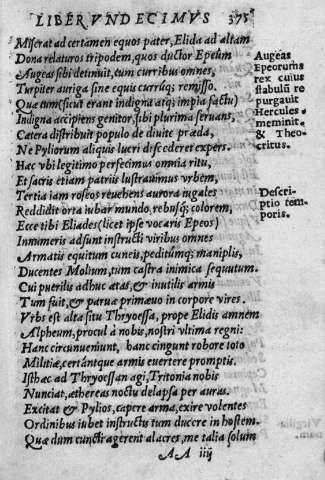 LIBER VNDECIMVS 375
Miserat ad certamen equos pater, Elida ad altam
Dona relaturos tripodem, quos ductor Epeûm
Augeas sibi detinuit, cum curribus omnes,
Turpiter auriga sine equis currúq; remisso.
Quæ tum (sicut erant indigna atq; impia factu)
Indigna accipiens genitor, sibi plurima seruans,
Cætera distribuit populo de diuite præda,
Ne Pyliorum aliquis lucri discederet expers.
Hæc vbi legitimo perfecimus omnia ritu,
Et sacris etiam patriis lustrauimus vrbem,
Tertia iam roseos reuehens aurora iugales
Reddidit orta iubar mundo, rebusq; colorem,
Ecce tibi Eliades (licet ipse vocaris Epeos)
Innumeris adsunt instructi viribus omnes
Armatis equitum cuneis, peditúmq; maniplis,
Ducentes Molium, tum castra inimica sequutum.
Cui puerilis adhuc ætas, & inutilis armis
Tum fuit, & paruæ primæuo in corpore vires.
Vrbs est alta situ Thryoessa, prope Elidis amnem
Alpheum, procul à nobis, nostri vltima regni:
Hanc circunueniunt, hanc cingunt robore toto
Militiæ, certántque armis euertere promptis.
Isthæc ad Thryoessan agi, Tritonia nobis
Nunciat, æthereas noctu delapsa per auras.
Excitat & Pylios, capere arma, exire volentes
Ordinibus iubet instructu tum ducere in hostem.
Quæ dum cuncti agerent alacres, me talia solum
AA iiij
Augeas
Epeorum
rex cuius
stabulū re
purgauit
Hercules
meminit
& Theo-
critus.
Descri-
ptio tem-
poris.